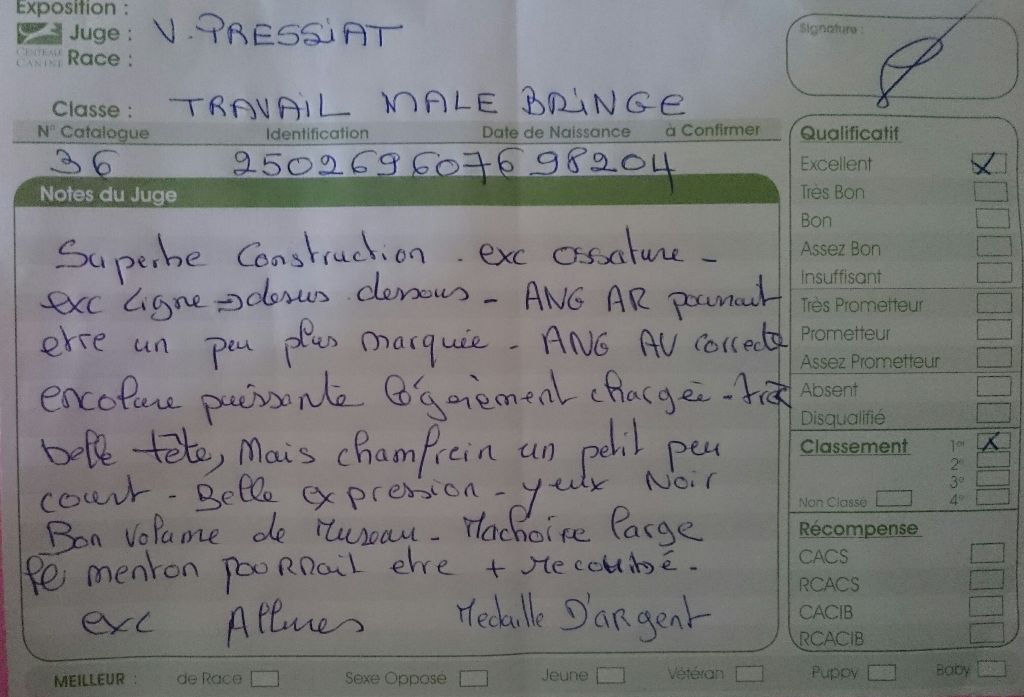 Exposition :
Juge : V. PRESSIAT
CENTRALE CANINE
Race :
Signature :
Classe : TRAVAIL MALE BRINGE
N° Catalogue Identification Date de Naissance à Confirmer
36 250269607698204
Notes du Juge
Superbe Construction . exc ossature -
exc Ligne => desus dessous - ANG AR pourrait
etre un peu plus marquée - ANG AV correcte
encolure puissante légèrement chargée - très
belle tête, Mais chamfrein un petit peu
court - Belle expression - yeux Noir
Bon volume de Museau - Machoire large
le menton pourrait etre + recourbé -
exc Allures Medaille D'argent
Qualificatif
Excellent X
Très Bon
Bon
Assez Bon
Insuffisant
Très Prometteur
Prometteur
Assez Prometteur
Absent
Disqualifié
Classement 1er X
2e
3e
Non Classé 4e
Récompense
CACS
RCACS
CACIB
RCACIB
MEILLEUR : de Race Sexe Opposé Jeune Vétéran Puppy Baby